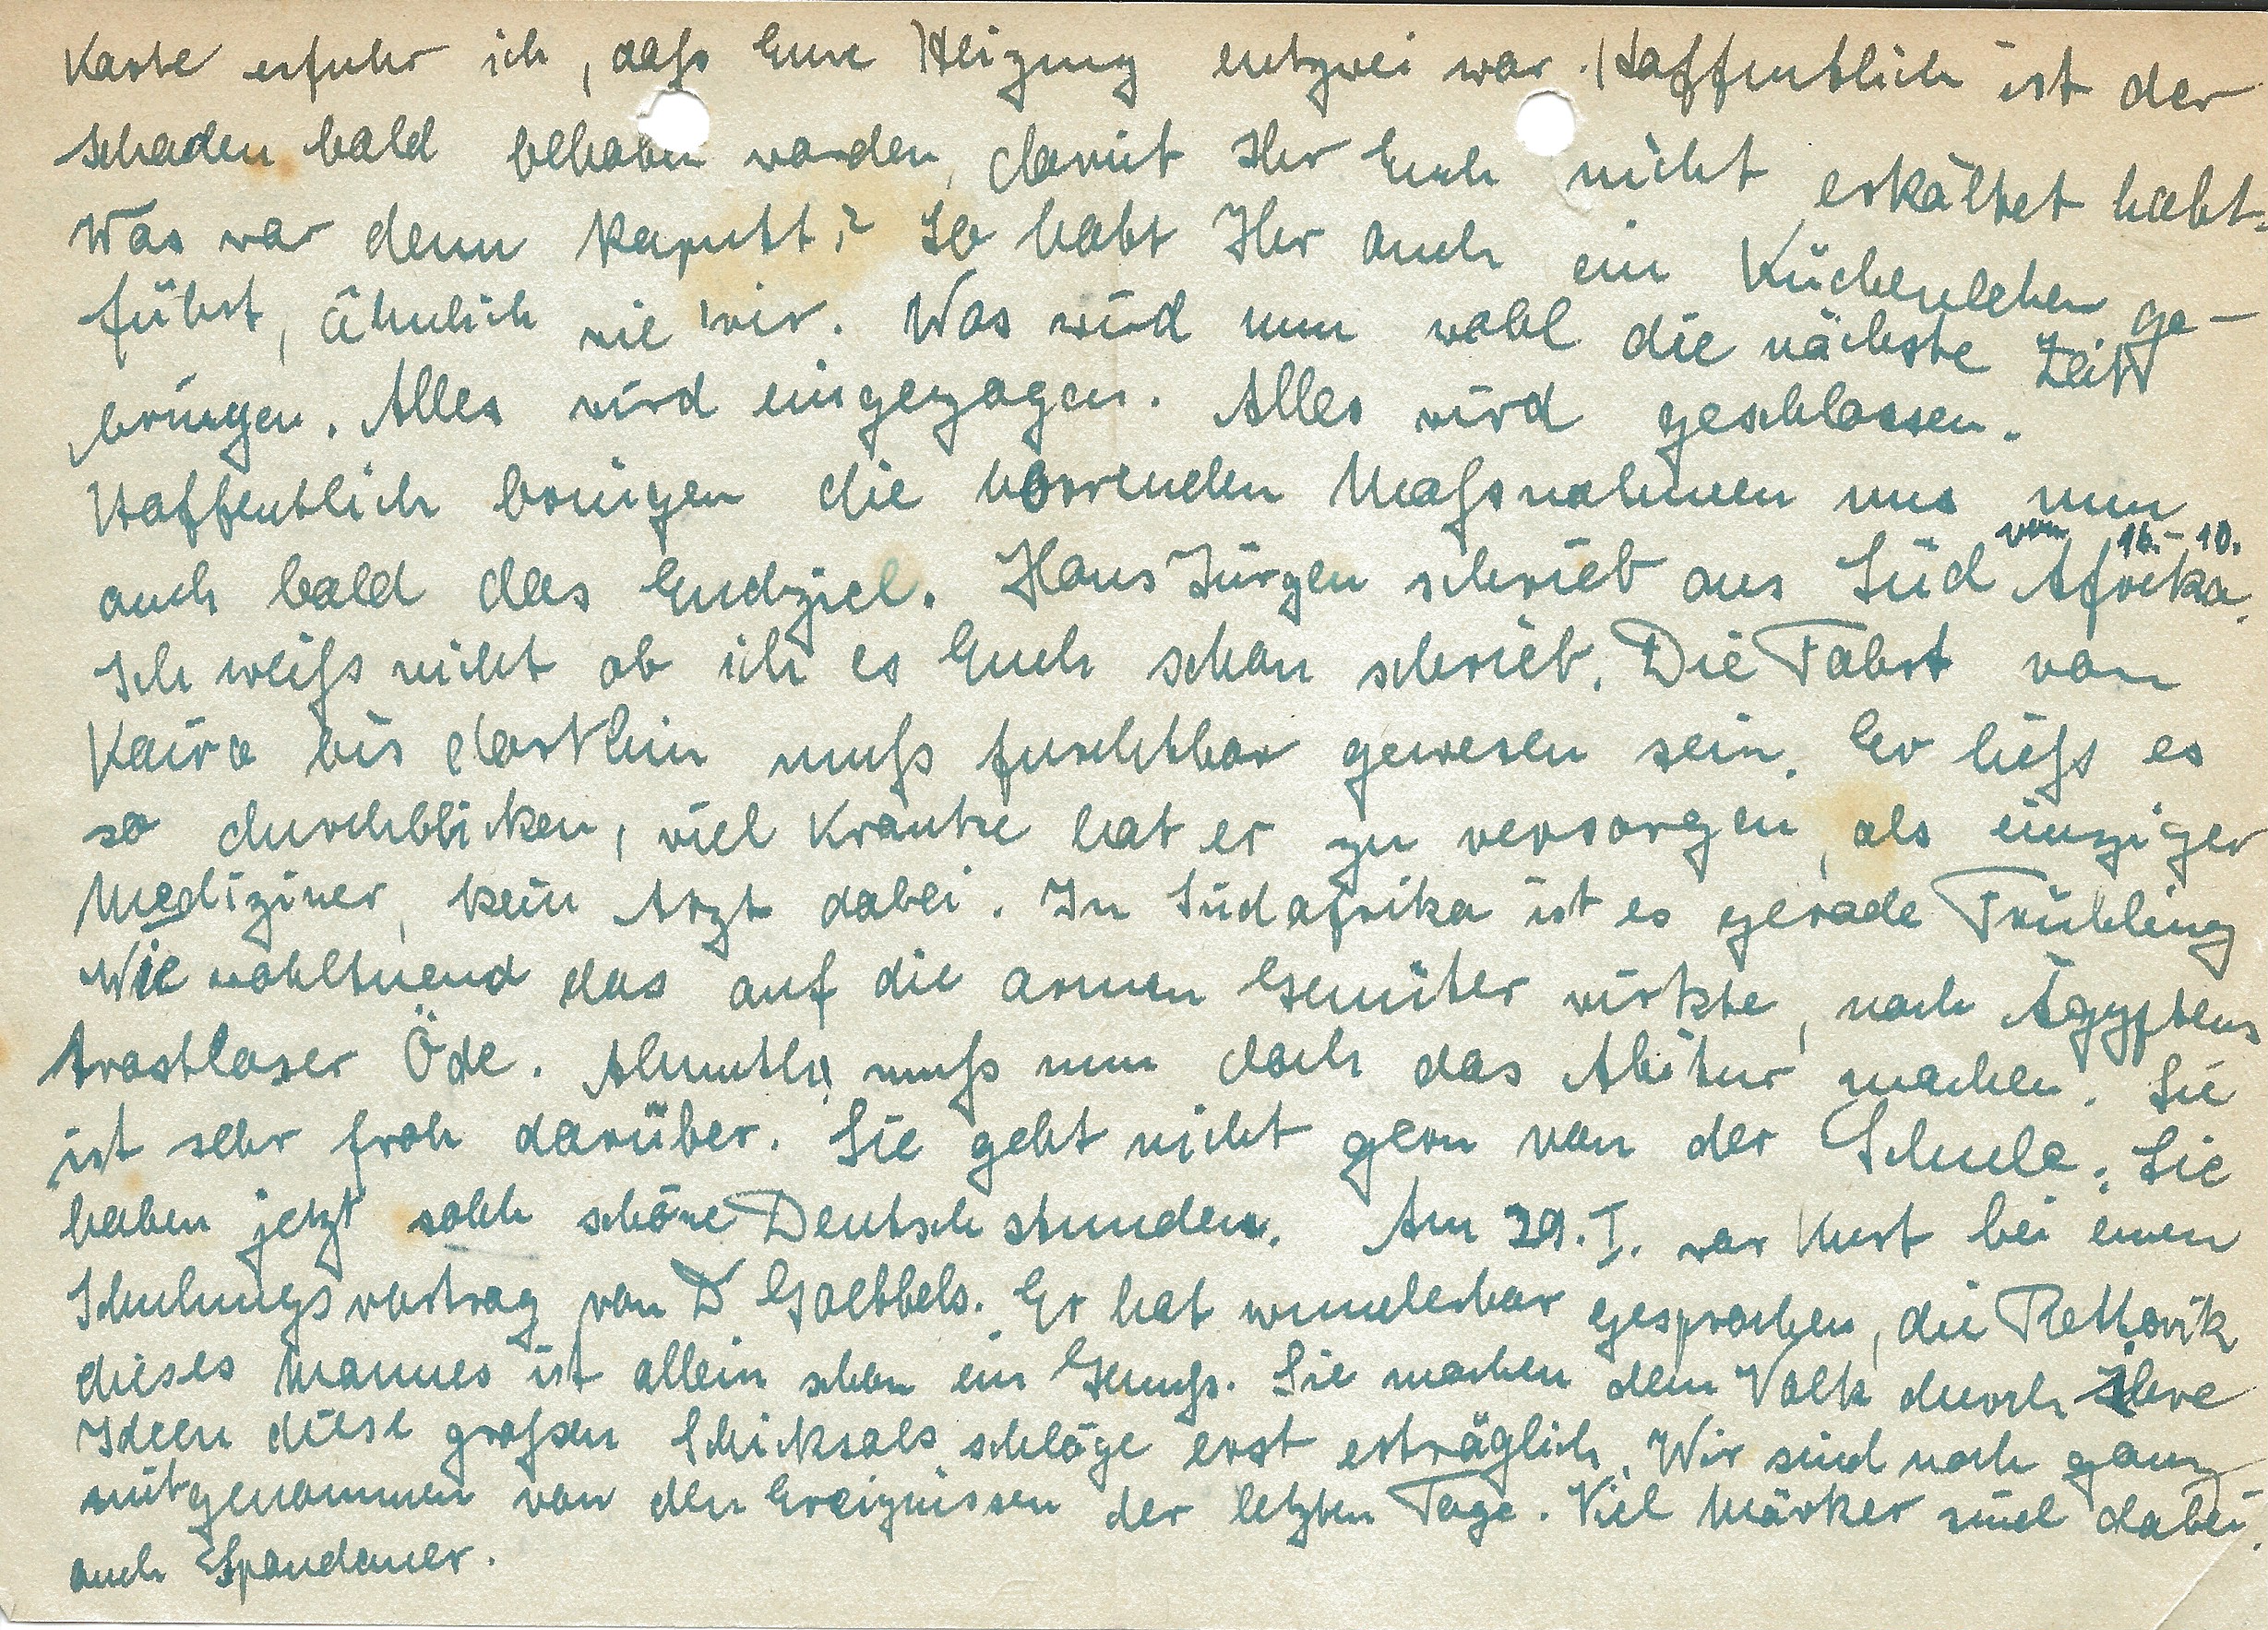 Karte erfuhr ich, daß Eure Heizung entzwei war. Hoffentlich ist der
Schaden bald behoben worden, damit Ihr Euch nicht erkältet habt.
Was war denn kaputt? So habt Ihr auch ein Küchenleben ge-
führt, ähnlich wie wir. Was wird nun wohl die nächste Zeit
bringen. Alles wird eingezogen. Alles wird geschlossen.
Hoffentlich bringen die horrenden Maßnahmen uns nun
auch bald das Endziel. Hans Jürgen schrieb aus Süd Afrika.
vom 16.-10.
Ich weiß nicht ob ich es Euch schon schrieb. Die Fahrt von
Kairo bis dorthin muß furchtbar gewesen sein. Er ließ es
so durchblicken, viel Kranke hat er zu versorgen, als einziger
Mediziner, kein Arzt dabei. In Südafrika ist es gerade Frühling
Wie wohltuend das auf die armen Gemüter wirkte, nach Ägyptens
trostloser Öde. muß nun doch das Abitur machen. Sie
ist sehr froh darüber. Sie geht nicht gern von der Schule. Sie
haben jetzt solch schöne Deutschstunden. Am 29.I. war Kurt bei einen
Schulungsvortrag von D Goebbels. Er hat wunderbar gesprochen, die Rethorik
dieses Mannes ist allein schon ein Genuß. Sie machen dem Volk durch Ihre
Ideen diese großen Schicksalsschläge erst erträglich. Wir sind noch ganz
mitgenommen von den Ereignissen der letzten Tage. Viel Märker sind dabei.
auch Spandauer.